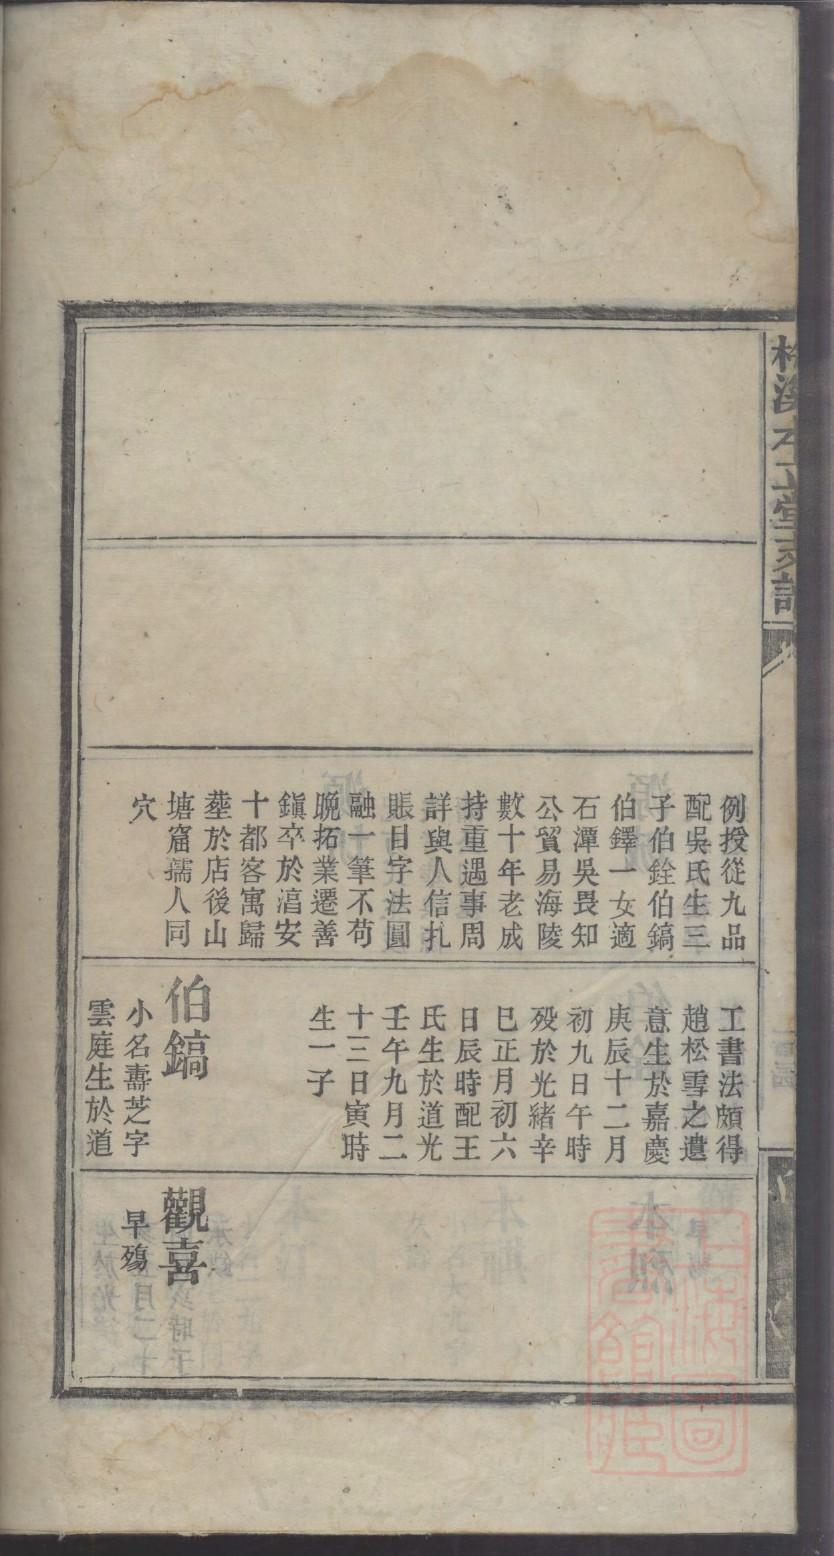 例授從九品
配吳氏生三
子伯銓伯鎬
伯鐸一女適
石潭吳畏知
公貿易海陵
數十年老成
持重遇事周
詳與人信扎
賬目字法圓
融一筆不苟
晩拓業遷善
鎭卒於湻安
十都客寓歸
塟於店後山
塘窟孺人同
穴
工書法頗得
趙松雪之遺
意生於嘉慶
庚辰十二月
初九日午時
歿於光緒辛
巳正月初六
日辰時配王
氏生於道光
壬午九月二
十三日寅時
生一子
伯鎬
小名壽芝字
雲庭生於道
觀喜
早殤